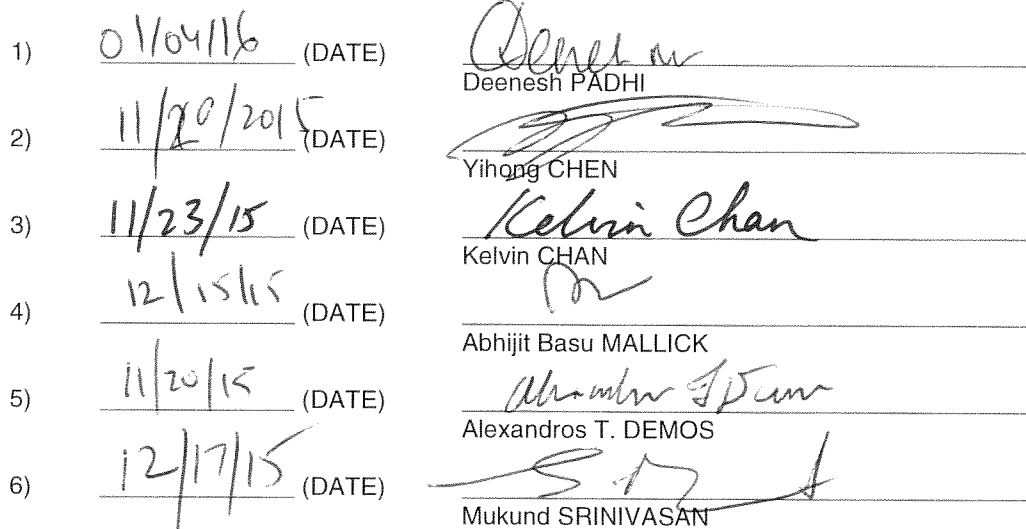 1) 01/04/16 (DATE)
Deenesh PADHI
2) 11/20/2015 (DATE)
Yihong CHEN
3) 11/23/15 (DATE) Kelvin Chan
Kelvin CHAN
4) 12/15/15 (DATE)
Abhijit Basu MALLICK
5) 11/20/15 (DATE)
Alexandros T. DEMOS
6) 12/17/15 (DATE)
Mukund SRINIVASAN